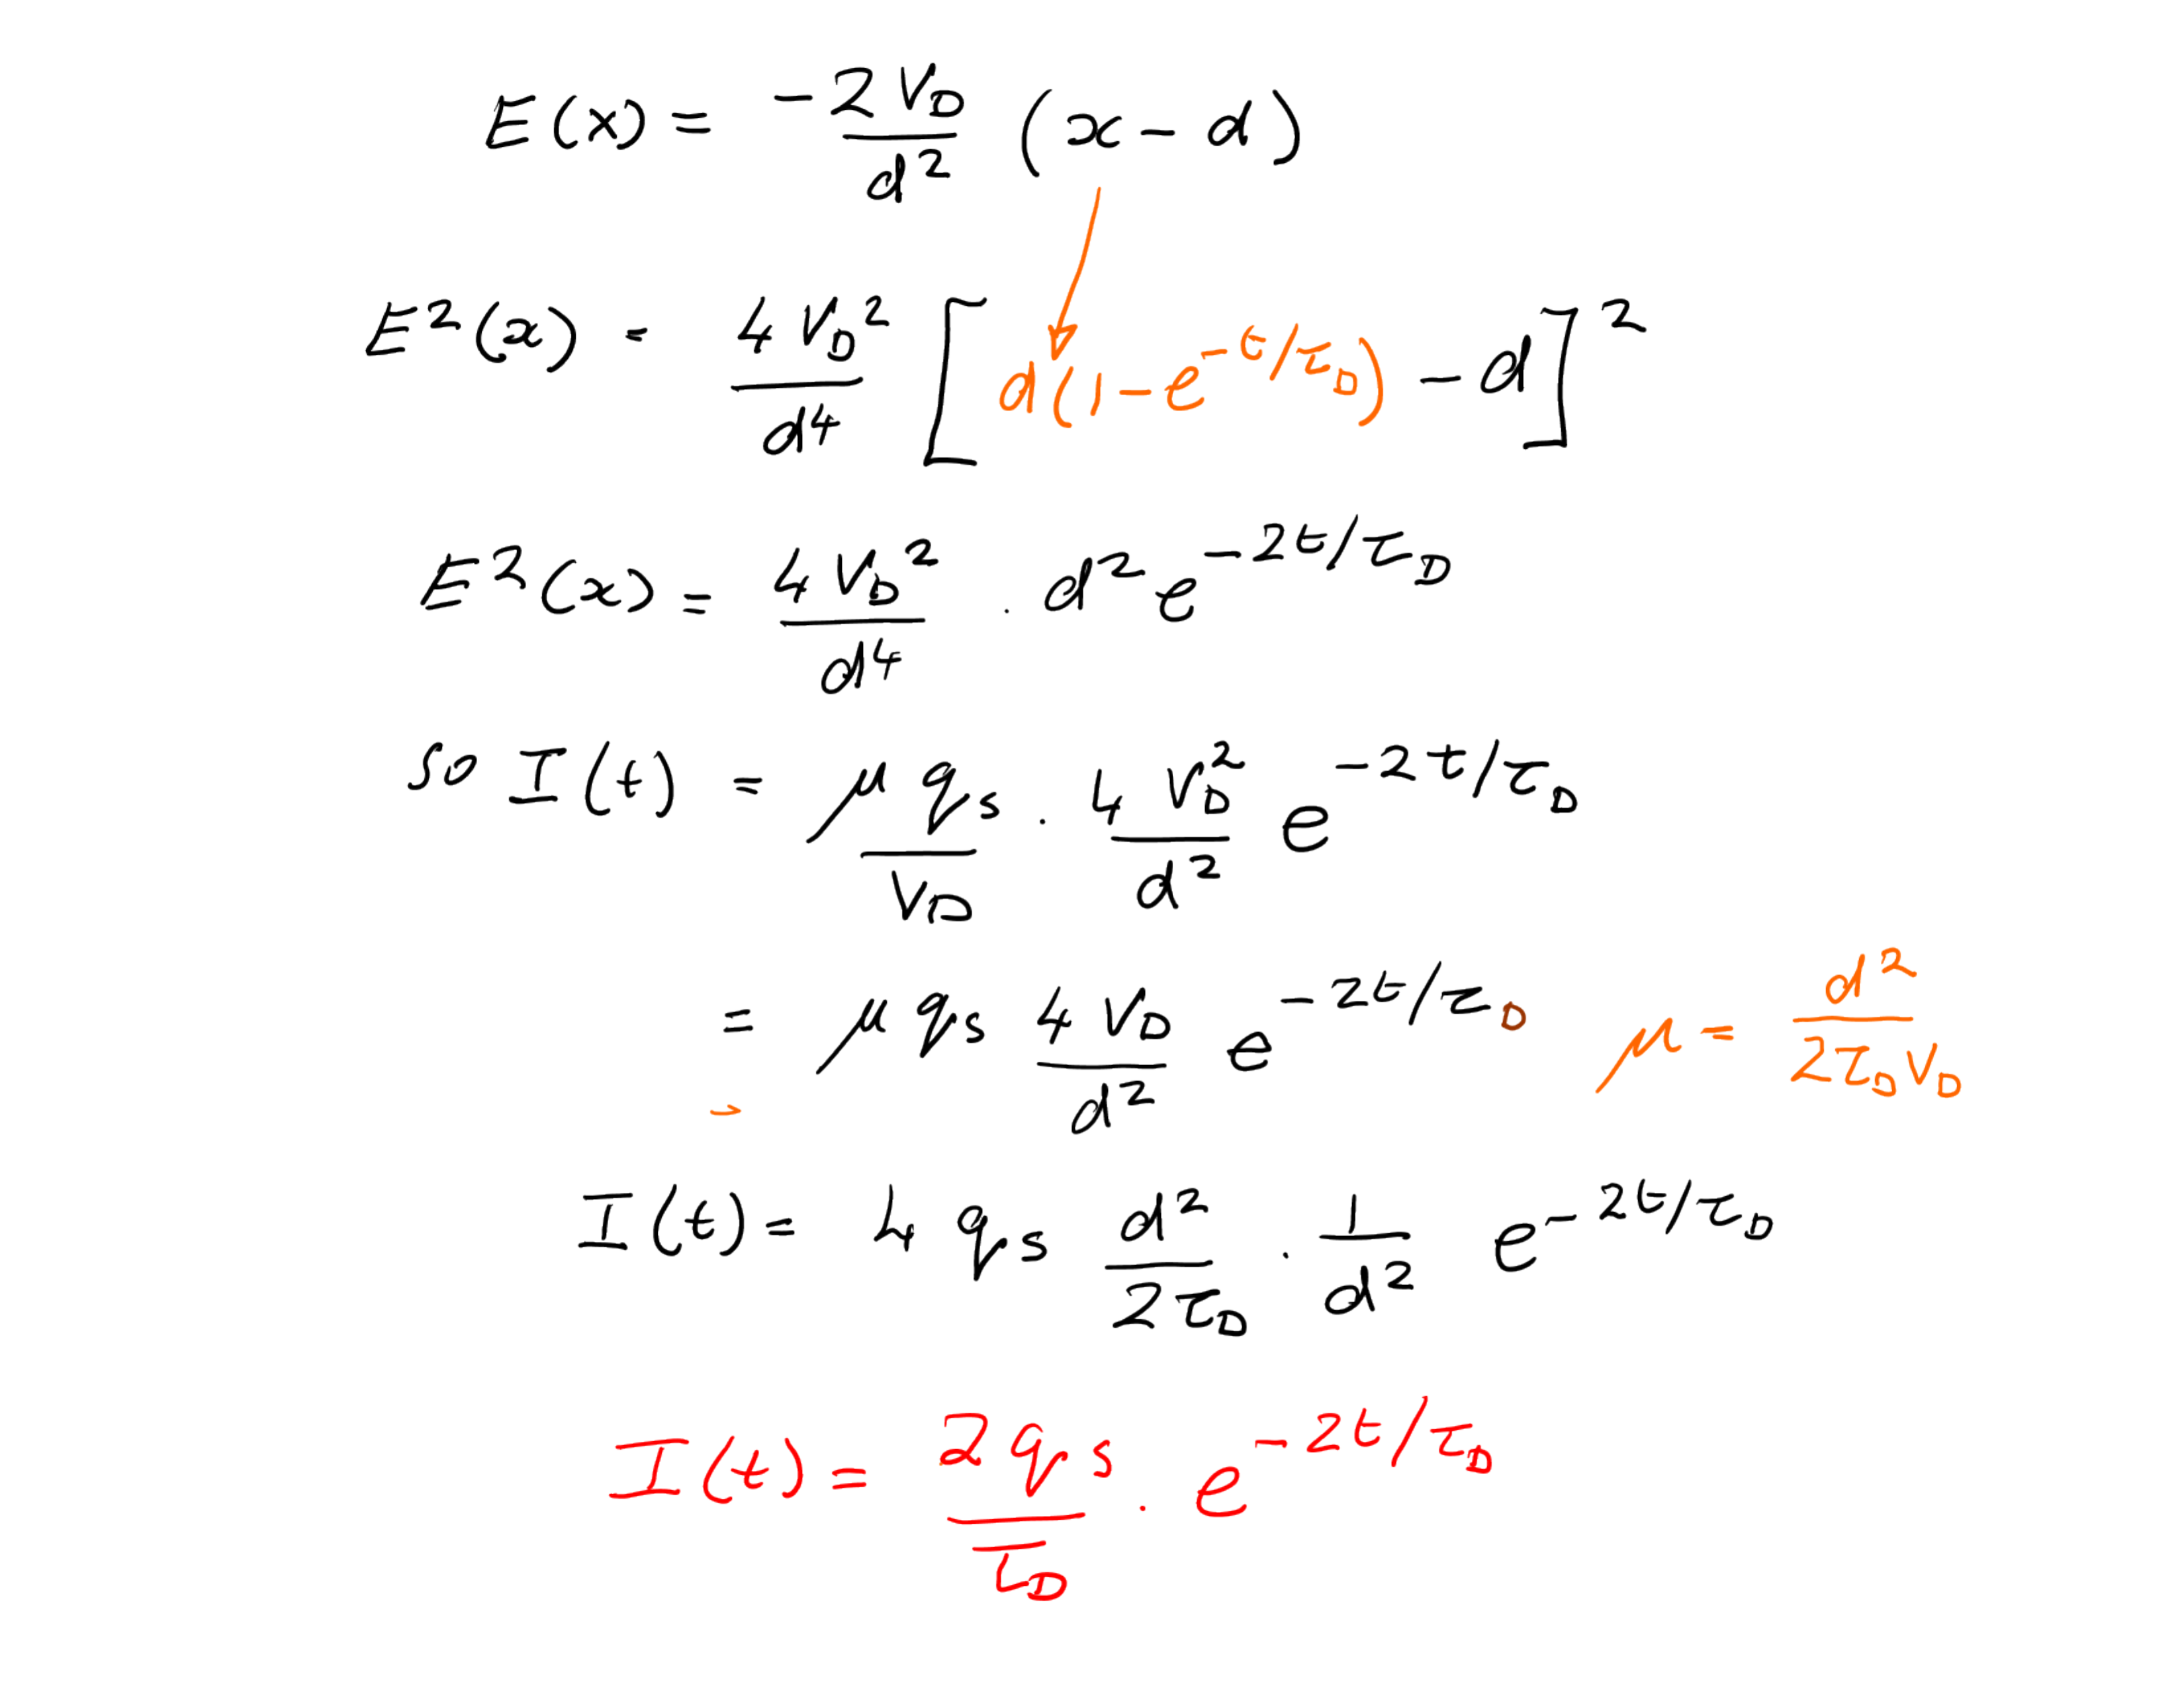 E(x) = -2V_D/d² (x - d)
E²(x) = 4V_D²/d⁴ [d(1 - e^(-t/τ_D)) - d]²
E²(x) = 4V_D²/d⁴ . d² e^(-2t/τ_D)
so I(t) = μ q_s/V_D . 4V_D²/d² e^(-2t/τ_D)
= μ q_s 4V_D/d² e^(-2t/τ_D) μ = d²/(2τ_D V_D)
I(t) = 4 q_s d²/(2τ_D) . 1/d² e^(-2t/τ_D)
I(t) = 2q_s/τ_D . e^(-2t/τ_D)